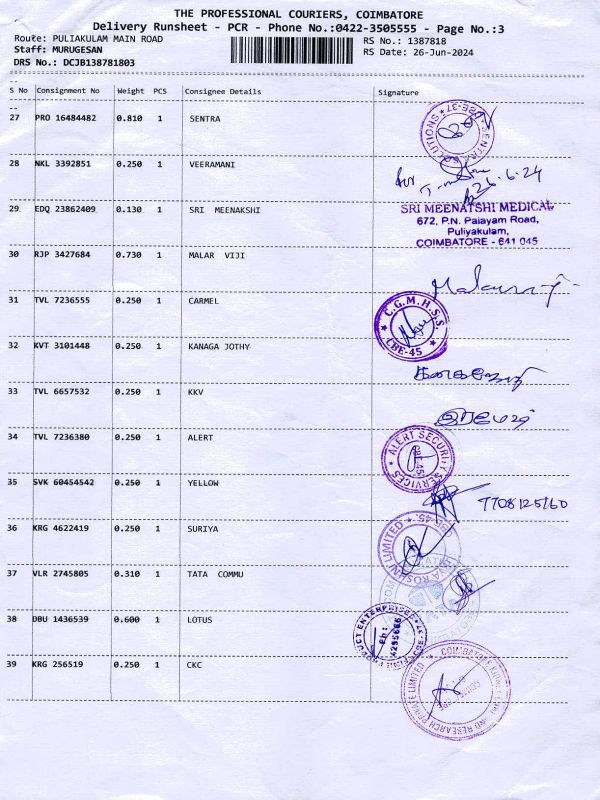 THE PROFESSIONAL COURIERS, COIMBATORE
Delivery Runsheet - PCR - Phone No.:0422-3505555 - Page No.:3
Route: PULIAKULAM MAIN ROAD
RS No.: 1387818
Staff: MURUGESAN
RS Date: 26-Jun-2024
DRS No.: DCJB138781803
S No Consignment No Weight PCS Consignee Details Signature
27 PRO 16484482 0.810 1 SENTRA
28 NKL 3392851 0.250 1 VEERAMANI
for
26.6.24
29 EDQ 23862409 0.130 1 SRI MEENAKSHI
SRI MEENATSHI MEDICAL
672, P.N. Palayam Road,
Puliyakulam,
COIMBATORE - 641 045
30 RJP 3427684 0.730 1 MALAR VIJI
31 TVL 7236555 0.250 1 CARMEL
C.G.M.H.S.S
CBE-45
32 KVT 3101448 0.250 1 KANAGA JOTHY
33 TVL 6657532 0.250 1 KKV
34 TVL 7236380 0.250 1 ALERT
ALERT SECURITY SERVICES
CBE-45
35 SVK 60454542 0.250 1 YELLOW
7708125160
36 KRG 4622419 0.250 1 SURIYA
ROSHNI LIMITED
37 VLR 2745805 0.310 1 TATA COMMU
38 DBU 1436539 0.600 1 LOTUS
PRODUCT ENTERPRISES
Ph:
4295666
39 KRG 256519 0.250 1 CKC
COIMBATORE
AND RESEARCH PRIVATE LIMITED